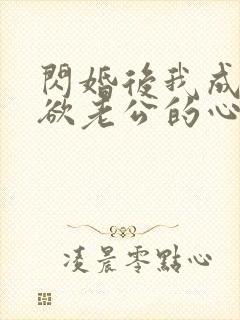 閃婚後我成
欲老公的心
凌晨零點心